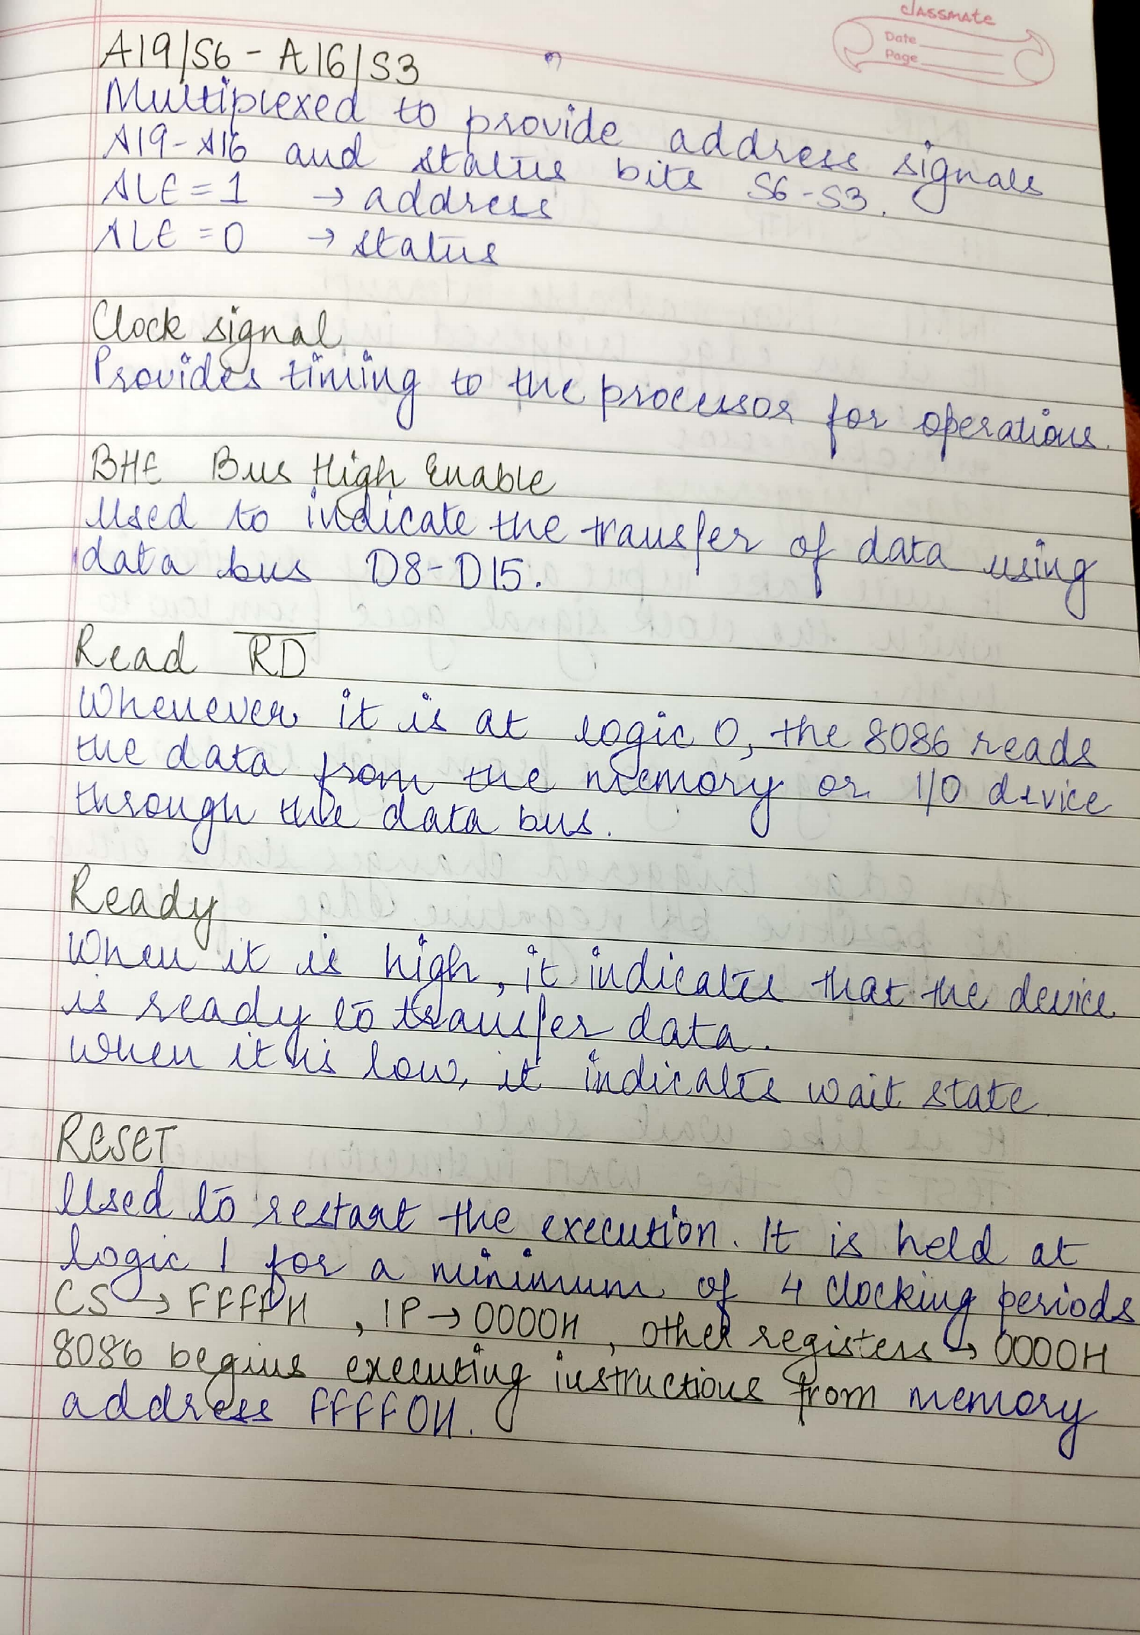 classmate
Date
Page
A19/S6 - A16/S3
Multiplexed to provide address signals
A19-A16 and status bits S6-S3.
ALE = 1 → address
ALE = 0 → status
Clock signal
Provides timing to the processor for operations.
BHE Bus High Enable
Used to indicate the transfer of data using
data bus D8-D15.
Read R̅D̅
Whenever it is at logic 0, the 8086 reads
the data from the memory or I/O device
through the data bus.
Ready
When it is high, it indicates that the device
is ready to transfer data.
when it is low, it indicates wait state
RESET
Used to restart the execution. It is held at
logic 1 for a minimum of 4 clocking periods
CS → FFFFH, IP → 0000H, other registers → 0000H
8086 begins executing instructions from memory
address FFFF0H.